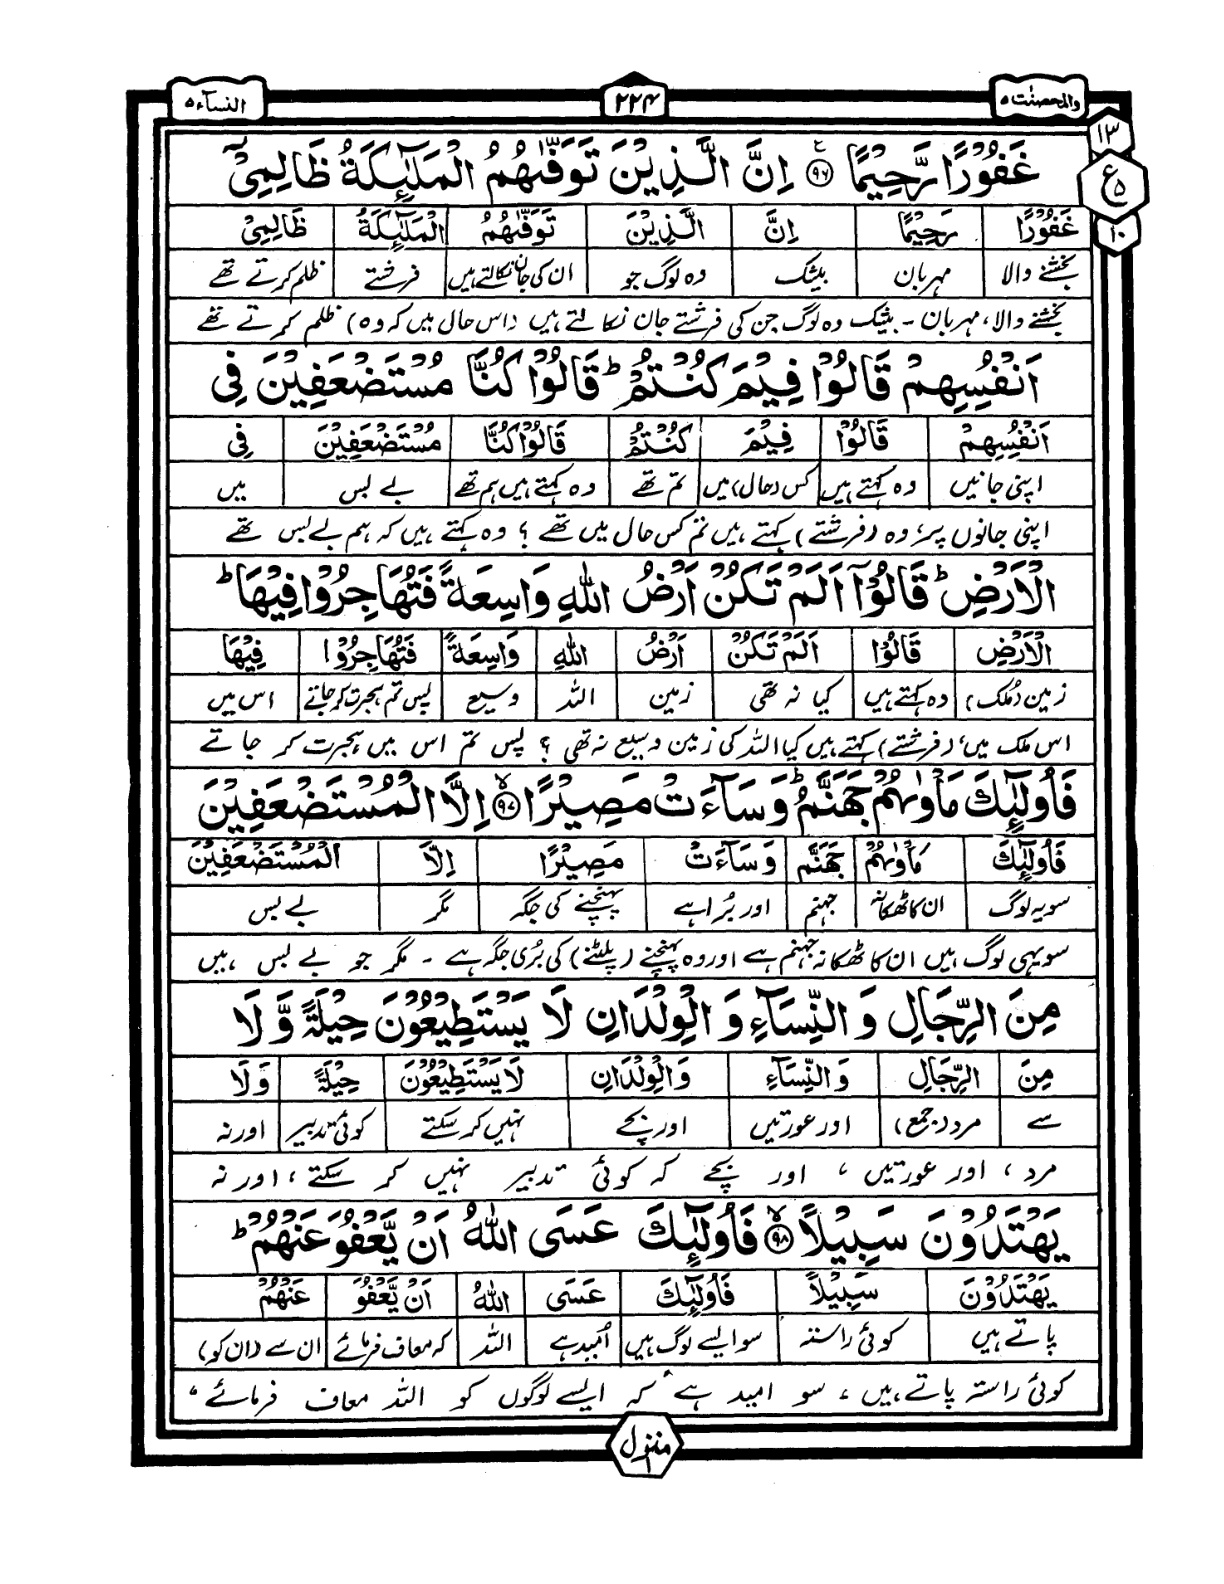 والمحصنٰت ٥ ٢٢٤ النسآء ٥
١٣
ع ٥
١٠
غَفُوْرًا رَّحِيْمًا ۟ع ٩٦ اِنَّ الَّذِيْنَ تَوَفّٰىهُمُ الْمَلٰٓئِكَةُ ظَالِمِىْٓ
غَفُوْرًا رَحِيْمًا اِنَّ الَّذِيْنَ تَوَفّٰىهُمُ الْمَلٰٓئِكَةُ ظَالِمِىْٓ
بخشنے والا مہربان بیشک وہ لوگ جو ان کی جان نکالتے ہیں فرشتے ظلم کرتے تھے
بخشنے والا، مہربان - بیشک وہ لوگ جن کی فرشتے جان نکالتے ہیں (اس حال میں کہ وہ) ظلم کرتے تھے
اَنْفُسِهِمْ قَالُوْا فِيْمَ كُنْتُمْ ؕ قَالُوْا كُنَّا مُسْتَضْعَفِيْنَ فِى
اَنْفُسِهِمْ قَالُوْا فِيْمَ كُنْتُمْ قَالُوْا كُنَّا مُسْتَضْعَفِيْنَ فِى
اپنی جانیں وہ کہتے ہیں کس (حال) میں تم تھے وہ کہتے ہیں ہم تھے بے بس میں
اپنی جانوں پر؛ وہ (فرشتے) کہتے ہیں تم کس حال میں تھے ؟ وہ کہتے ہیں کہ ہم بے بس تھے
الْاَرْضِ ؕ قَالُوْٓا اَلَمْ تَكُنْ اَرْضُ اللّٰهِ وَاسِعَةً فَتُهَاجِرُوْا فِيْهَا ؕ
الْاَرْضِ قَالُوْٓا اَلَمْ تَكُنْ اَرْضُ اللّٰهِ وَاسِعَةً فَتُهَاجِرُوْا فِيْهَا
زمین (ملک) وہ کہتے ہیں کیا نہ تھی زمین اللہ وسیع پس تم ہجرت کر جاتے اس میں
اس ملک میں، (فرشتے) کہتے ہیں کیا اللہ کی زمین وسیع نہ تھی ؟ پس تم اس میں ہجرت کر جاتے
فَاُولٰٓئِكَ مَاْوٰىهُمْ جَهَنَّمُ ؕ وَسَآءَتْ مَصِيْرًا ۙ ٩٧ اِلَّا الْمُسْتَضْعَفِيْنَ
فَاُولٰٓئِكَ مَاْوٰىهُمْ جَهَنَّمُ وَسَآءَتْ مَصِيْرًا اِلَّا الْمُسْتَضْعَفِيْنَ
سو یہ لوگ ان کا ٹھکانہ جہنم اور بُرا ہے پہنچنے کی جگہ مگر بے بس
سو یہی لوگ ہیں ان کا ٹھکانہ جہنم ہے اور وہ پہنچنے (پلٹنے) کی بُری جگہ ہے - مگر جو بے بس ہیں
مِنَ الرِّجَالِ وَ النِّسَآءِ وَ الْوِلْدَانِ لَا يَسْتَطِيْعُوْنَ حِيْلَةً وَّ لَا
مِنَ الرِّجَالِ وَالنِّسَآءِ وَالْوِلْدَانِ لَا يَسْتَطِيْعُوْنَ حِيْلَةً وَّلَا
سے مرد (جمع) اور عورتیں اور بچے نہیں کر سکتے کوئی تدبیر اور نہ
مرد ، اور عورتیں ، اور بچے کہ کوئی تدبیر نہیں کر سکتے ، اور نہ
يَهْتَدُوْنَ سَبِيْلًا ۙ ٩٨ فَاُولٰٓئِكَ عَسَى اللّٰهُ اَنْ يَّعْفُوَ عَنْهُمْ ؕ
يَهْتَدُوْنَ سَبِيْلًا فَاُولٰٓئِكَ عَسَى اللّٰهُ اَنْ يَّعْفُوَ عَنْهُمْ
پاتے ہیں کوئی راستہ سو ایسے لوگ ہیں اُمید ہے اللہ کہ معاف فرمائے ان سے (ان کو)
کوئی راستہ پاتے ہیں ، سو امید ہے کہ ایسے لوگوں کو اللہ معاف فرمائے ،
منزل ١